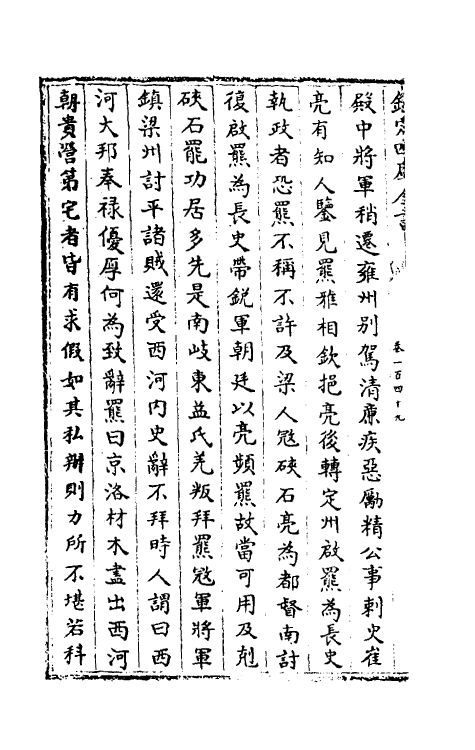 欽定四庫全書
卷一百四十九
殿中將軍稍遷雍州别駕清亷疾惡勵精公事刺史崔
亮有知人鑒見羆雅相欽挹亮後轉定州啟羆為長史
執政者恐羆不稱不許及梁人㓂硖石亮為都督南討
復啟羆為長史帶鋭軍朝廷以亮頻羆故當可用及剋
硖石羆功居多先是南岐東益氐羌叛拜羆㓂軍將軍
鎮梁州討平諸賊還受西河内史辭不拜時人謂曰西
河大邦奉禄優厚何為致辭羆曰京洛材木盡出西河
朝貴營第宅者皆有求假如其私辦則力所不堪若科